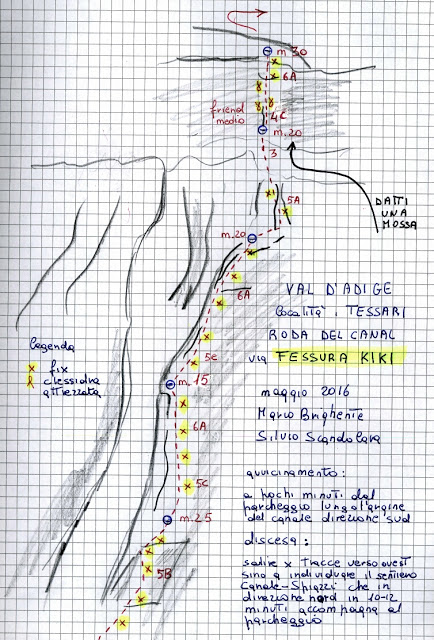 m. 30
6A
friend
medio
4c
m. 20
3
DATTI
UNA
MOSSA
5A
m. 20
6A
VAL D'ADIGE
località: TESSARI
RODA DEL CANAL
via FESSURA KIKI
legenda
x fix
clessidra
attrezzata
5c
m. 15
maggio 2016
Mario Brighente
Silvio Scandolara
6A
5c
m. 25
5B
avvicinamento:
a pochi minuti dal
parcheggio lungo l'argine
del canale direzione sud
discesa:
salire x tracce verso ovest
sino a individuare il sentiero
Canale-Spiazzi che in
direzione nord in 10-12
minuti accompagna al
parcheggio